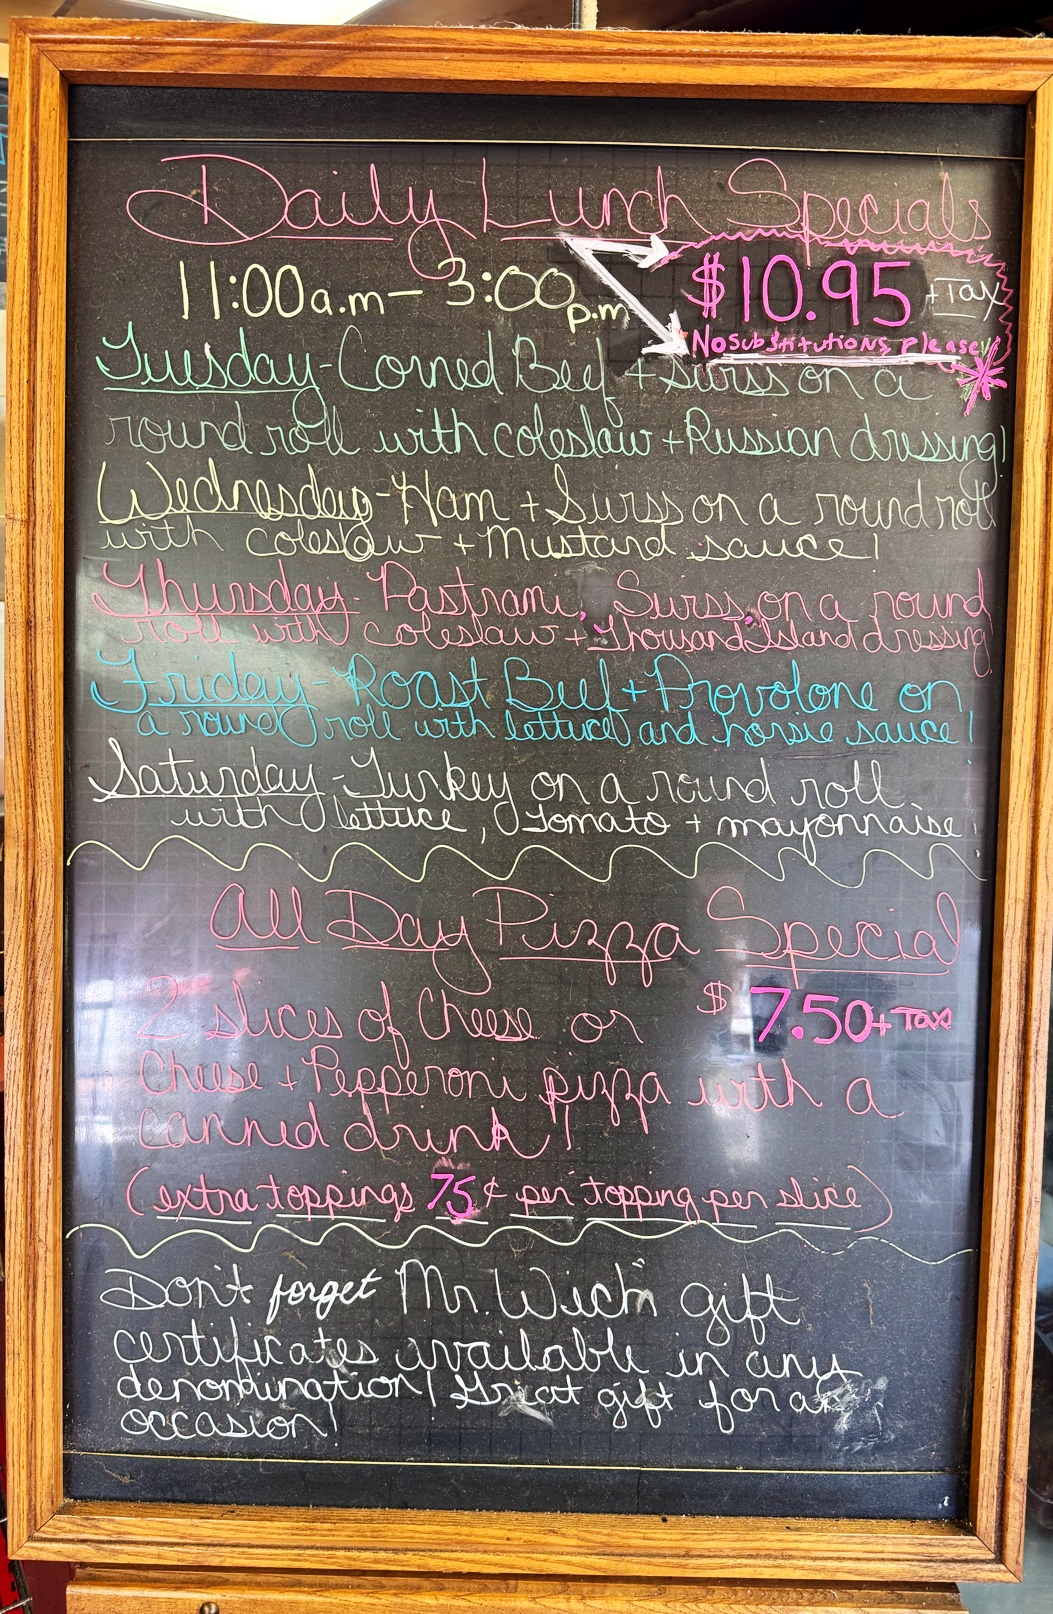 Daily Lunch Specials
11:00 a.m - 3:00 p.m $10.95 + Tax
No substitutions please
Tuesday - Corned Beef + Swiss on a
round roll with coleslaw + Russian dressing!
Wednesday - Ham + Swiss on a round roll
with coleslaw + Mustard sauce!
Thursday - Pastrami, Swiss, on a round
roll with coleslaw + "Thousand" Island dressing!
Friday - Roast Beef + Provolone on
a round roll with lettuce and horsie sauce!
Saturday - Turkey on a round roll
with lettuce, Tomato + mayonnaise!
All Day Pizza Special
2 slices of Cheese or $7.50 + Tax
Cheese + Pepperoni pizza with a
canned drink!
(extra toppings 75¢ per topping per slice)
Don't forget Mr. Wich gift
certificates available in any
denomination! Great gift for an
occasion!